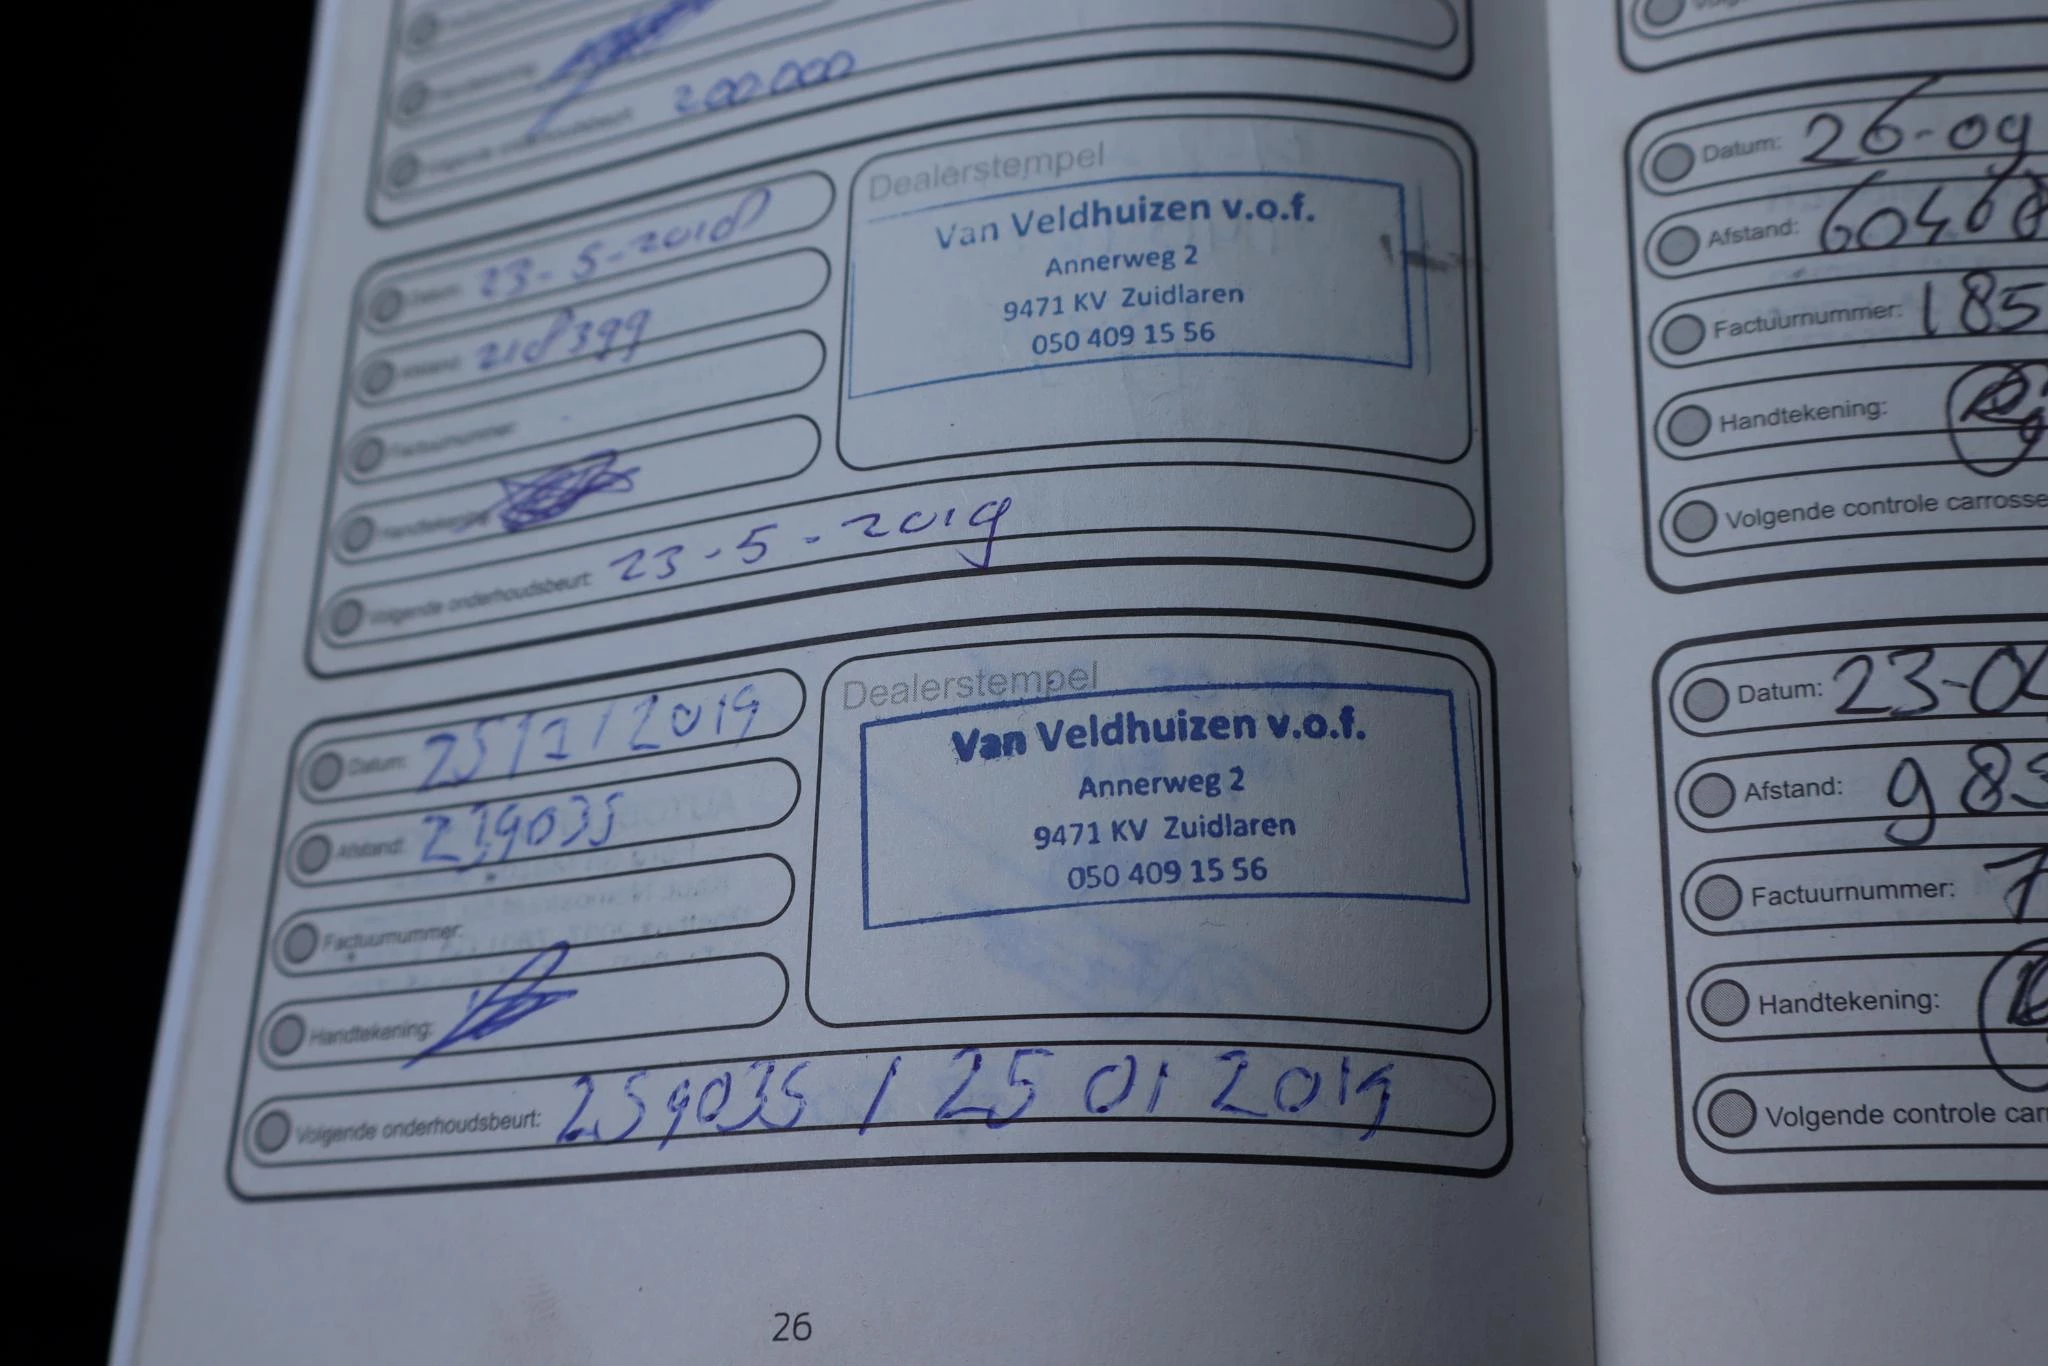 200.000
Datum: 23-5-2018
Afstand: 218399
Factuurnummer:
Handtekening:
Volgende onderhoudsbeurt: 23-5-2019
Dealerstempel
Van Veldhuizen v.o.f.
Annerweg 2
9471 KV Zuidlaren
050 409 15 56
Datum: 25/1/2019
Afstand: 239035
Factuurnummer:
Handtekening:
Volgende onderhoudsbeurt: 259035 / 25 01 2019
Dealerstempel
Van Veldhuizen v.o.f.
Annerweg 2
9471 KV Zuidlaren
050 409 15 56
26
Datum: 26-09
Afstand: 60468
Factuurnummer: 185
Handtekening:
Volgende controle carrosse
Datum: 23-04
Afstand: 983
Factuurnummer: 7
Handtekening:
Volgende controle car